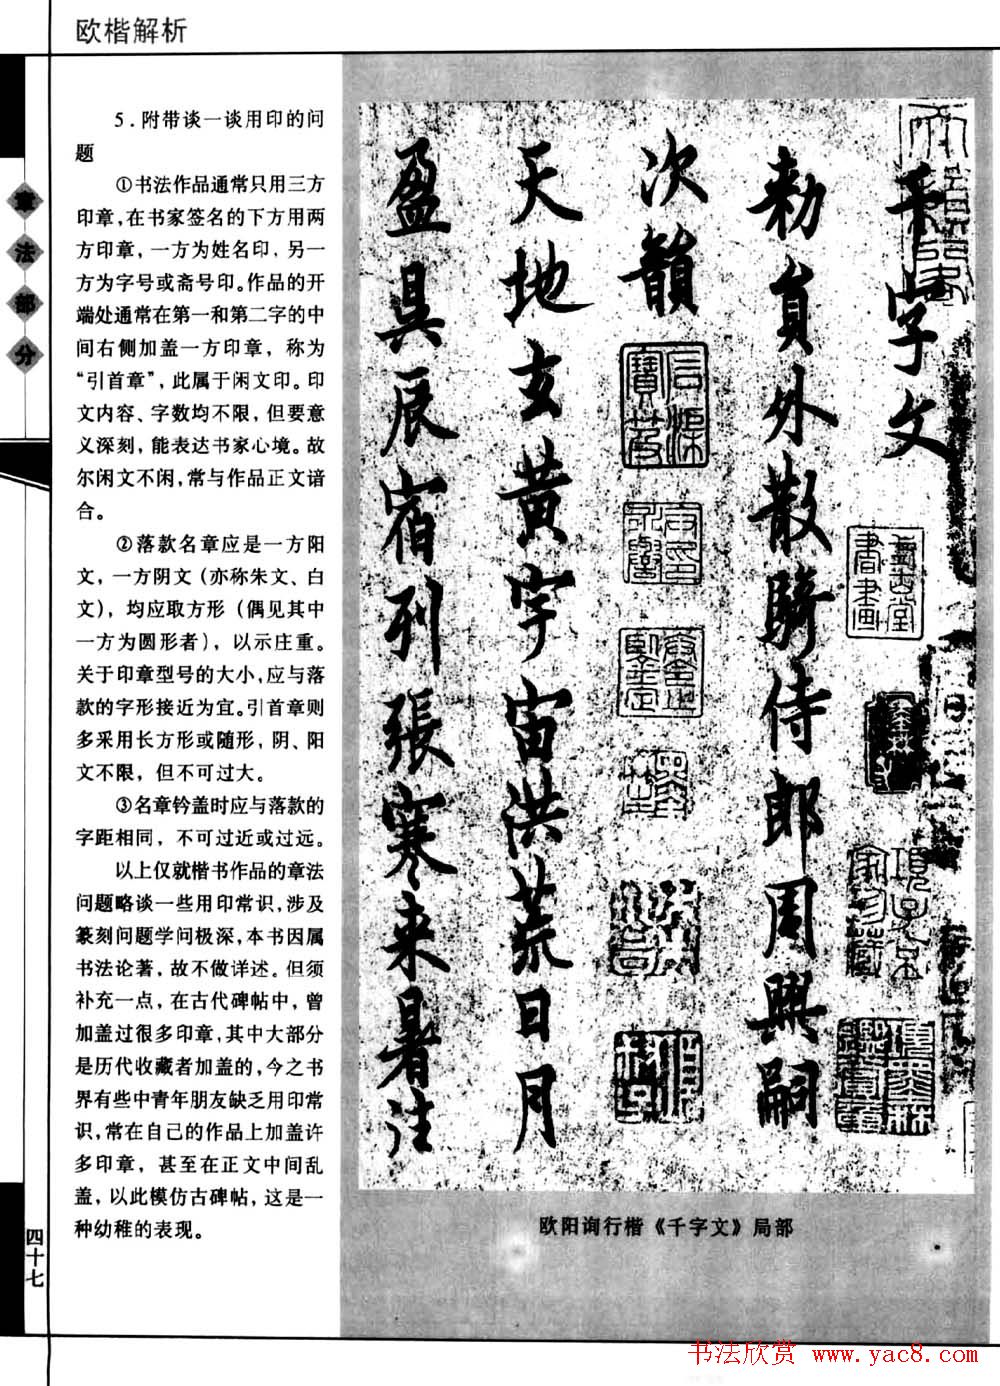 欧楷解析
章法部分
5.附带谈一谈用印的问
题
①书法作品通常只用三方
印章,在书家签名的下方用两
方印章，一方为姓名印，另一
方为字号或斋号印。作品的开
端处通常在第一和第二字的中
间右侧加盖一方印章，称为
“引首章”，此属于闲文印。印
文内容、字数均不限，但要意
义深刻，能表达书家心境。故
尔闲文不闲,常与作品正文谙
合。
②落款名章应是一方阳
文，一方阴文（亦称朱文、白
文），均应取方形（偶见其中
一方为圆形者），以示庄重。
关于印章型号的大小,应与落
款的字形接近为宜。引首章则
多采用长方形或随形，阴、阳
文不限，但不可过大。
③名章钤盖时应与落款的
字距相同，不可过近或过远。
以上仅就楷书作品的章法
问题略谈一些用印常识,涉及
篆刻问题学问极深,本书因属
书法论著，故不做详述。但须
补充一点，在古代碑帖中，曾
加盖过很多印章,其中大部分
是历代收藏者加盖的,今之书
界有些中青年朋友缺乏用印常
识,常在自己的作品上加盖许
多印章，甚至在正文中间乱
盖，以此模仿古碑帖，这是一
种幼稚的表现。
四十七
千字文
勅員外散騎侍郎周興嗣
次韻
天地玄黃宇宙洪荒日月
盈昃辰宿列張寒来暑往
欧阳询行楷《千字文》局部
书法欣赏 www.yac8.com